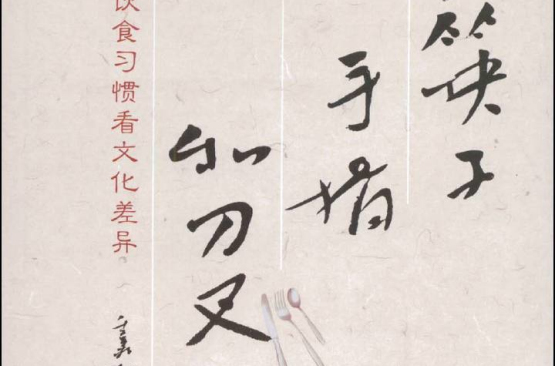 筷子
手指
和刀叉
饮食习惯看文化差异